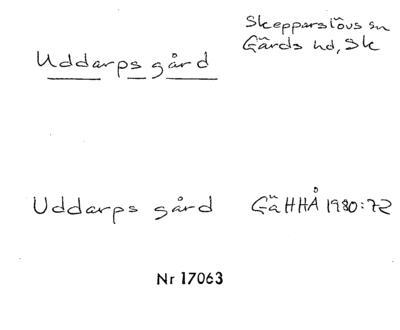 Skepparslövs sn
Gärds hd, Sk
Uddarps gård
Uddarps gård GäHHÅ 1980:72
Nr 17063